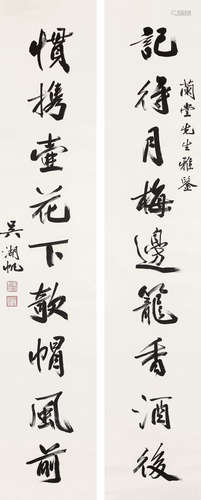 記得月梅邊籠香酒後
蘭堂先生雅鑒
慣携壺花下欹帽風前
吳湖帆